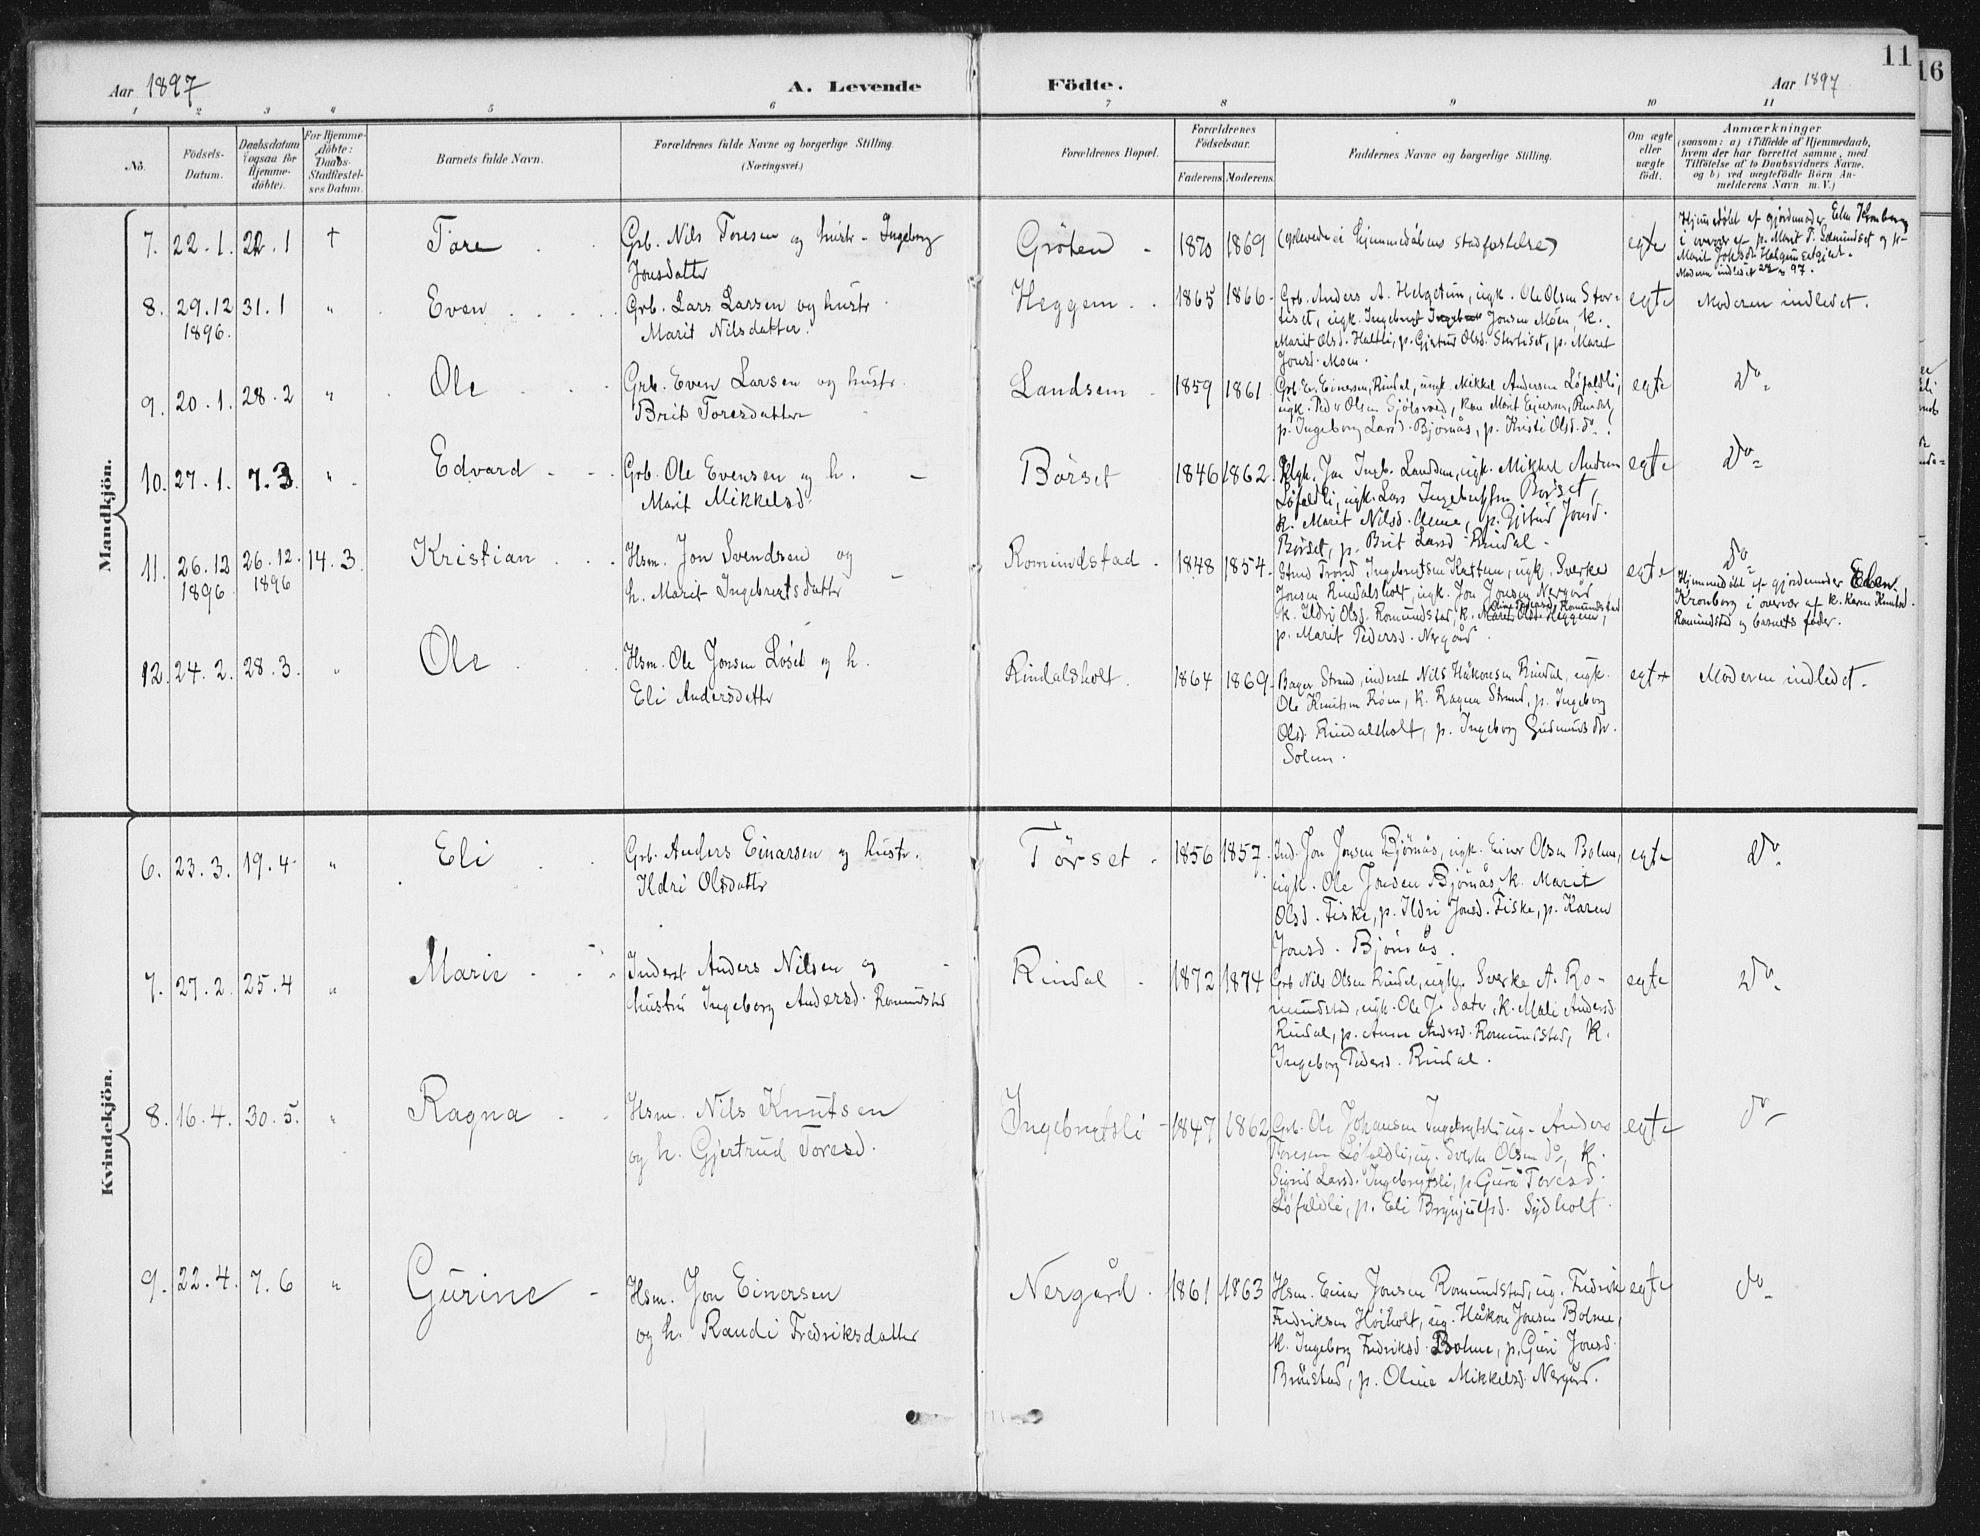 11
16
Aar 1897
A. Levende
Födte.
Aar 1897.
1 2 3 4 5 6 7 8 9 10 11
No.
Födsels-
Datum.
Daabsdatum
(ogsaa for
Hjemme-
döbte).
For Hjemme-
döbte:
Daabs-
Stadfæstel-
ses Datum.
Barnets fulde Navn.
Forældrenes fulde Navne og borgerlige Stilling.
(Næringsvei.)
Forældrenes Bopæl.
Forældrenes
Födselsaar.
Faderens Moderens
Faddernes Navne og borgerlige Stilling.
Om ægte
eller
uægte
födt.
Anmærkninger
(saasom: a) i Tilfælde af Hjemmedaab,
hvem der har forrettet samme, med
Tilföielse af to Daabsvidners Navne,
og b) ved uægtefödte Börn An-
melderens Navn m. V.)
Mandkjön.
7. 22.1. 22.1 † Tore
Grb. Nils Toresen og hustr. Ingeborg
Jonsdatter
Gröten 1870 1869
(oplevede ei hjemmedåbens stadfæstelse)
egte
Hjemmedöbt af gjordemoder Elen Kronborg
i overvær af p. Marit T. Edmundset og k.
Moderen indledet 97.
8. 29.12 31.1 " Even
1896.
Grb. Lars Larsen og hustr.
Marit Nilsdatter.
Heggem 1865 1866
Grb. Anders A. Helgetun, ugk. Ole Olsen Stor-
liset, ugk. Ingebrigt Jonsen Moen, k.
Marit Olsd. Haltli, p. Gjertrud Olsd. Storliset, p. Marit
Jonsd. Moen.
egte
Moderen indledet.
9. 20.1. 28.2 " Ole
Grb. Even Larsen og hustr.
Brit Toresdatter
Landsem 1859 1861
Grb. E. Einersen, Rindal, ungk. Mikkel Andersen Löfaldli,
ugk. Peder Olsen Gjölsvved, kone Marit Einersen, Rindal,
p. Ingeborg Larsd. Bjørnås, p. Kristi Olsd. do.
egte
Do.
10. 27.1. 7.3. " Edvard
Grb. Ole Evensen og h.
Marit Mikkelsd.
Börset 1846 1862
Ugk. Jon Ingb. Landsem, ugk. Mikkel Andersen
Löfaldli, ugk. Lars Ingebrigtsen Börset,
k. Marit Nilsd. Aune, p. Gjertrud Jonsd.
Börset, p. Brit Larsd. Rindal.
egte
Do.
11. 26.12 26.12. 14.3. Kristian
1896 1896
Hsm. Jon Svendsen og
h. Marit Ingebrigtsdatter
Romundstad 1848 1854
Trond Ingebrigtsen Kattem, ugk. Sverke
Jonsen Rindalsholt, ugk. Jon Jonsen Nergård
k. Ildri Olsd. Romundstad, k. Heggem,
p. Marit Pedersd. Nergård.
egte
Do.
Hjemmedöbt af gjordemoder Elen
Kronborg i overvær af k. Karen Knutsd.
Romundstad og barnets fader.
12. 24.2. 28.3. " Ole
Hsm. Ole Jonsen Löset og h.
Eli Andersdatter
Rindalsholt. 1864 1869
Bager Strand, inderst Nils Håkonsen Rindal, ugk.
Ole Knutsen Röen, k. Ragna Strand, p. Ingeborg
Olsd. Rindalsholt, p. Ingeborg Gudmundsdtr.
Solem.
egte
Moderen indledet.
Kvindekjön.
6. 23.3. 19.4 " Eli
Grb. Anders Einarsen og hustr.
Ildri Olsdatter
Törset 1856 1857.
Ind. Jon Jonsen Björnås, ugk. Einer Olsen Bolme,
ugk. Ole Jonsen Björnås, k. Marit
Olsd. Fiske, p. Ildri Jonsd. Fiske, p. Karen
Jonsd. Björnås.
egte
Do.
7. 27.2. 25.4 " Marie
Inderst Anders Nilsen og
hustru Ingeborg Andersd. Romundstad
Rindal 1872 1874
Grb. Nils Olsen Rindal, ugk. Sverke A. Ro-
mundstad, ugk. Ole J. Sæter, k. Mali Andersd.
Rindal, p. Anne Andersd. Romundstad, k.
Ingeborg Pedersd. Rindal.
egte
Do.
8. 16.4. 30.5. " Ragna
Hsm. Nils Knutsen
og h. Gjertrud Toresd.
Ingebrigtsli 1847 1862
Grb. Ole Johansen Ingebrigtsli, ug. Anders
Toresen Löfaldli, ug. Sverke Olsen do, k.
Sigrid Larsd. Ingebrigtsli, p. Guru Toresd.
Löfaldli, p. Eli Brynjulfsd. Sydholt.
egte
do
9. 22.4. 7.6 " Gurine
Hsm. Jon Einersen
og h. Randi Fredriksdatter
Nergård. 1861 1863
Hsm. Einar Jonsen Romundstad, ug. Fredrik
Fredriksen Höiholt, ug. Håkon Jonsen Bolme,
k. Ingeborg Fredriksd. Bolme, p. Guri Jonsd.
Brönstad, p. Oline Mikkelsd. Nergård.
egte
do.